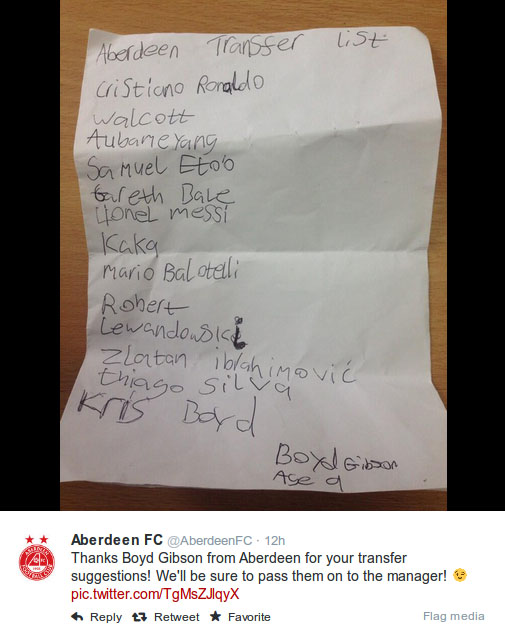 Aberdeen Transfer list
Cristiano Ronaldo
Walcott
Aubameyang
Samuel Eto'o
Gareth Bale
Lionel messi
Kaka
Mario Balotelli
Robert
Lewandowski
Zlatan ibrahimović
thiago silva
Kris Boyd
Boyd Gibson
Age 9
Aberdeen FC @AberdeenFC · 12h
Thanks Boyd Gibson from Aberdeen for your transfer
suggestions! We'll be sure to pass them on to the manager! 😉
pic.twitter.com/TgMsZJlqyX
Reply Retweet Favorite Flag media